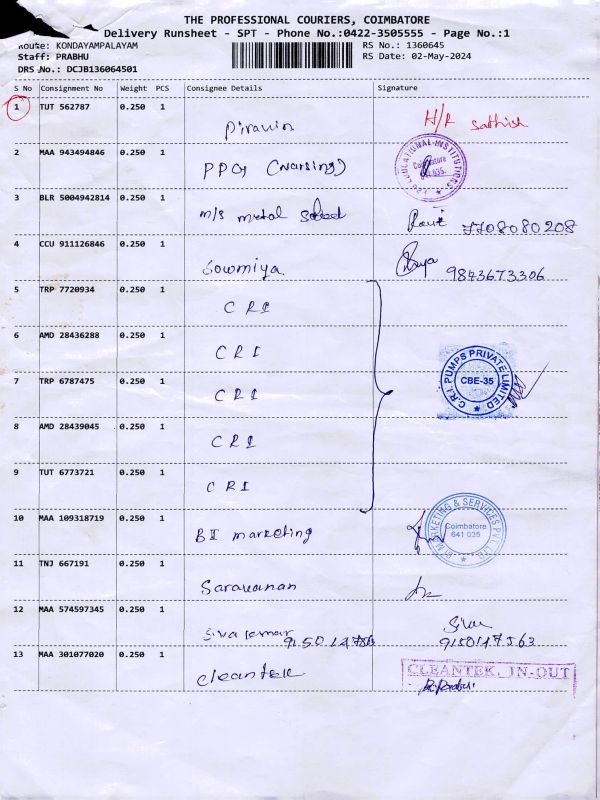 THE PROFESSIONAL COURIERS, COIMBATORE
Delivery Runsheet - SPT - Phone No.:0422-3505555 - Page No.:1
Route: KONDAYAMPALAYAM RS No.: 1360645
Staff: PRABHU RS Date: 02-May-2024
DRS No.: DCJB136064501
S No Consignment No Weight PCS Consignee Details Signature
1 TUT 562787 0.250 1
Piravin H/R Sathish
2 MAA 943494846 0.250 1
PPG (Nursing) EDUCATIONAL INSTITUTIONS Coimbatore 641 035.
3 BLR 5004942814 0.250 1
m/s metal 7708080208
4 CCU 911126846 0.250 1
Sowmiya 9843673306
5 TRP 7720934 0.250 1
CRI
6 AMD 28436288 0.250 1
CRI
7 TRP 6787475 0.250 1
CRI C.R.I. PUMPS PRIVATE LIMITED CBE-35
8 AMD 28439045 0.250 1
CRI
9 TUT 6773721 0.250 1
CRI
10 MAA 109318719 0.250 1
BI marketing BI MARKETING & SERVICES PVT. LTD. Coimbatore 641 035
11 TNJ 667191 0.250 1
Saravanan
12 MAA 574597345 0.250 1
Sivakumar Siva
9150147563
13 MAA 301077020 0.250 1
Cleantek CLEANTEK, IN-OUT